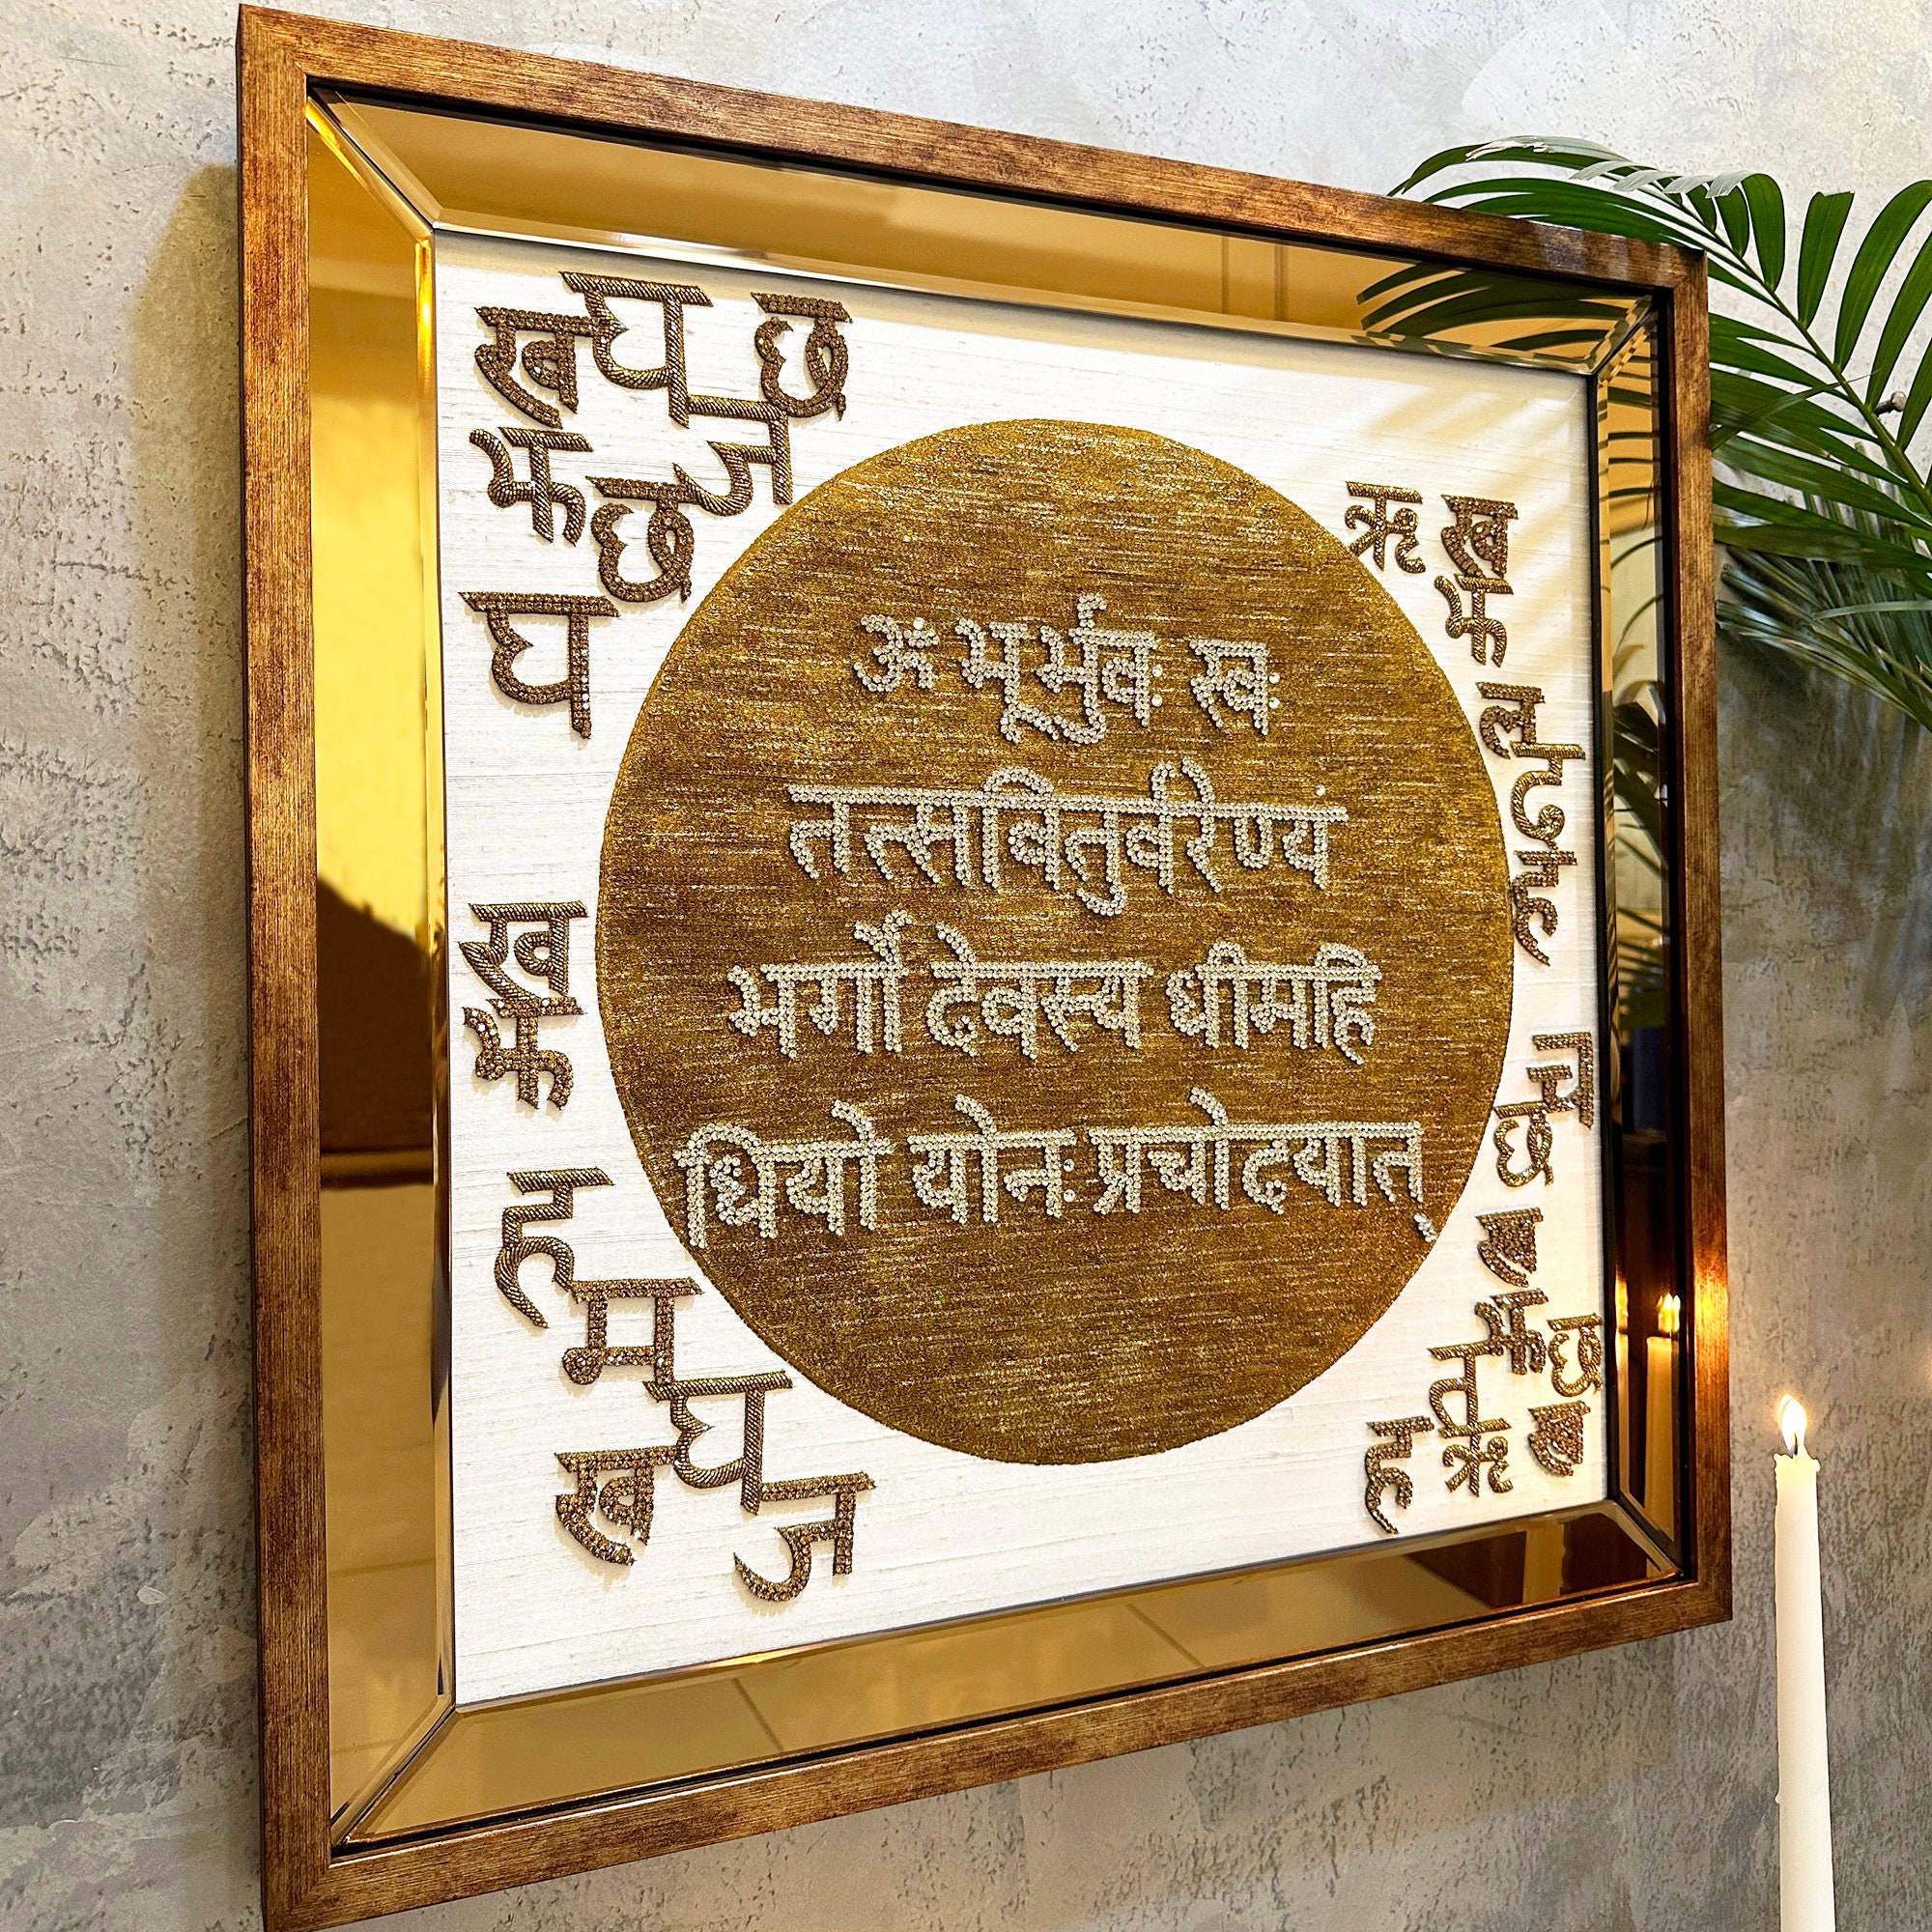 ख घ छ
झ छ ज
घ
ऋ ख
झ
ल
ॐ भूर्भुवः स्वः
तत्सवितुर्वरेण्यं
भर्गो देवस्य धीमहि
धियो योनः प्रचोदयात्
ख
झ
ह
म
घ
ख ज
च
छ
ख
झ छ
त
ह ऋ ख